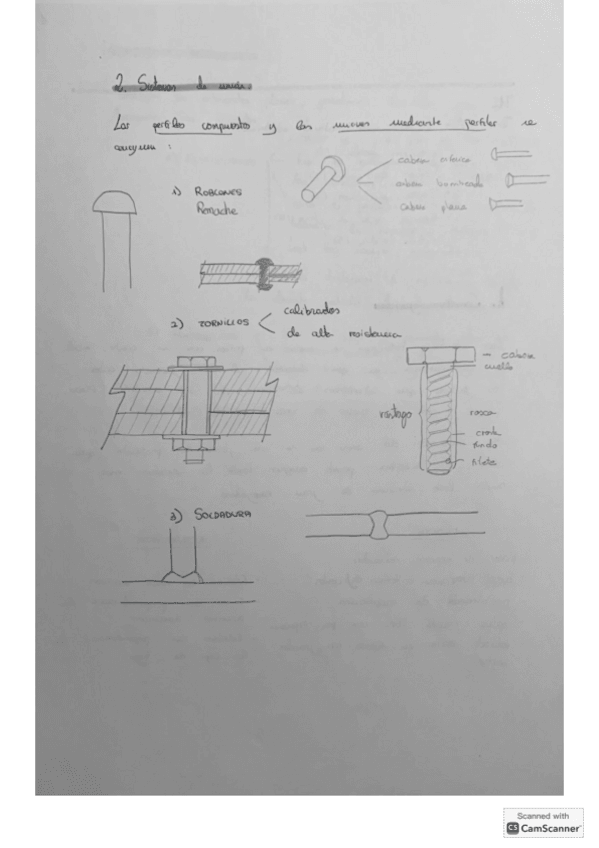 2. Sistemas de unión
Los perfiles compuestos y las uniones mediante perfiles se
consiguen :
1) ROBLONES
Remache
cabeza esférica
cabeza bombeada
cabeza plana
2) TORNILLOS
calibrados
de alta resistencia
cabeza
cuello
vástago
rosca
cresta
fondo
filete
3) SOLDADURA
Scanned with
CS CamScanner